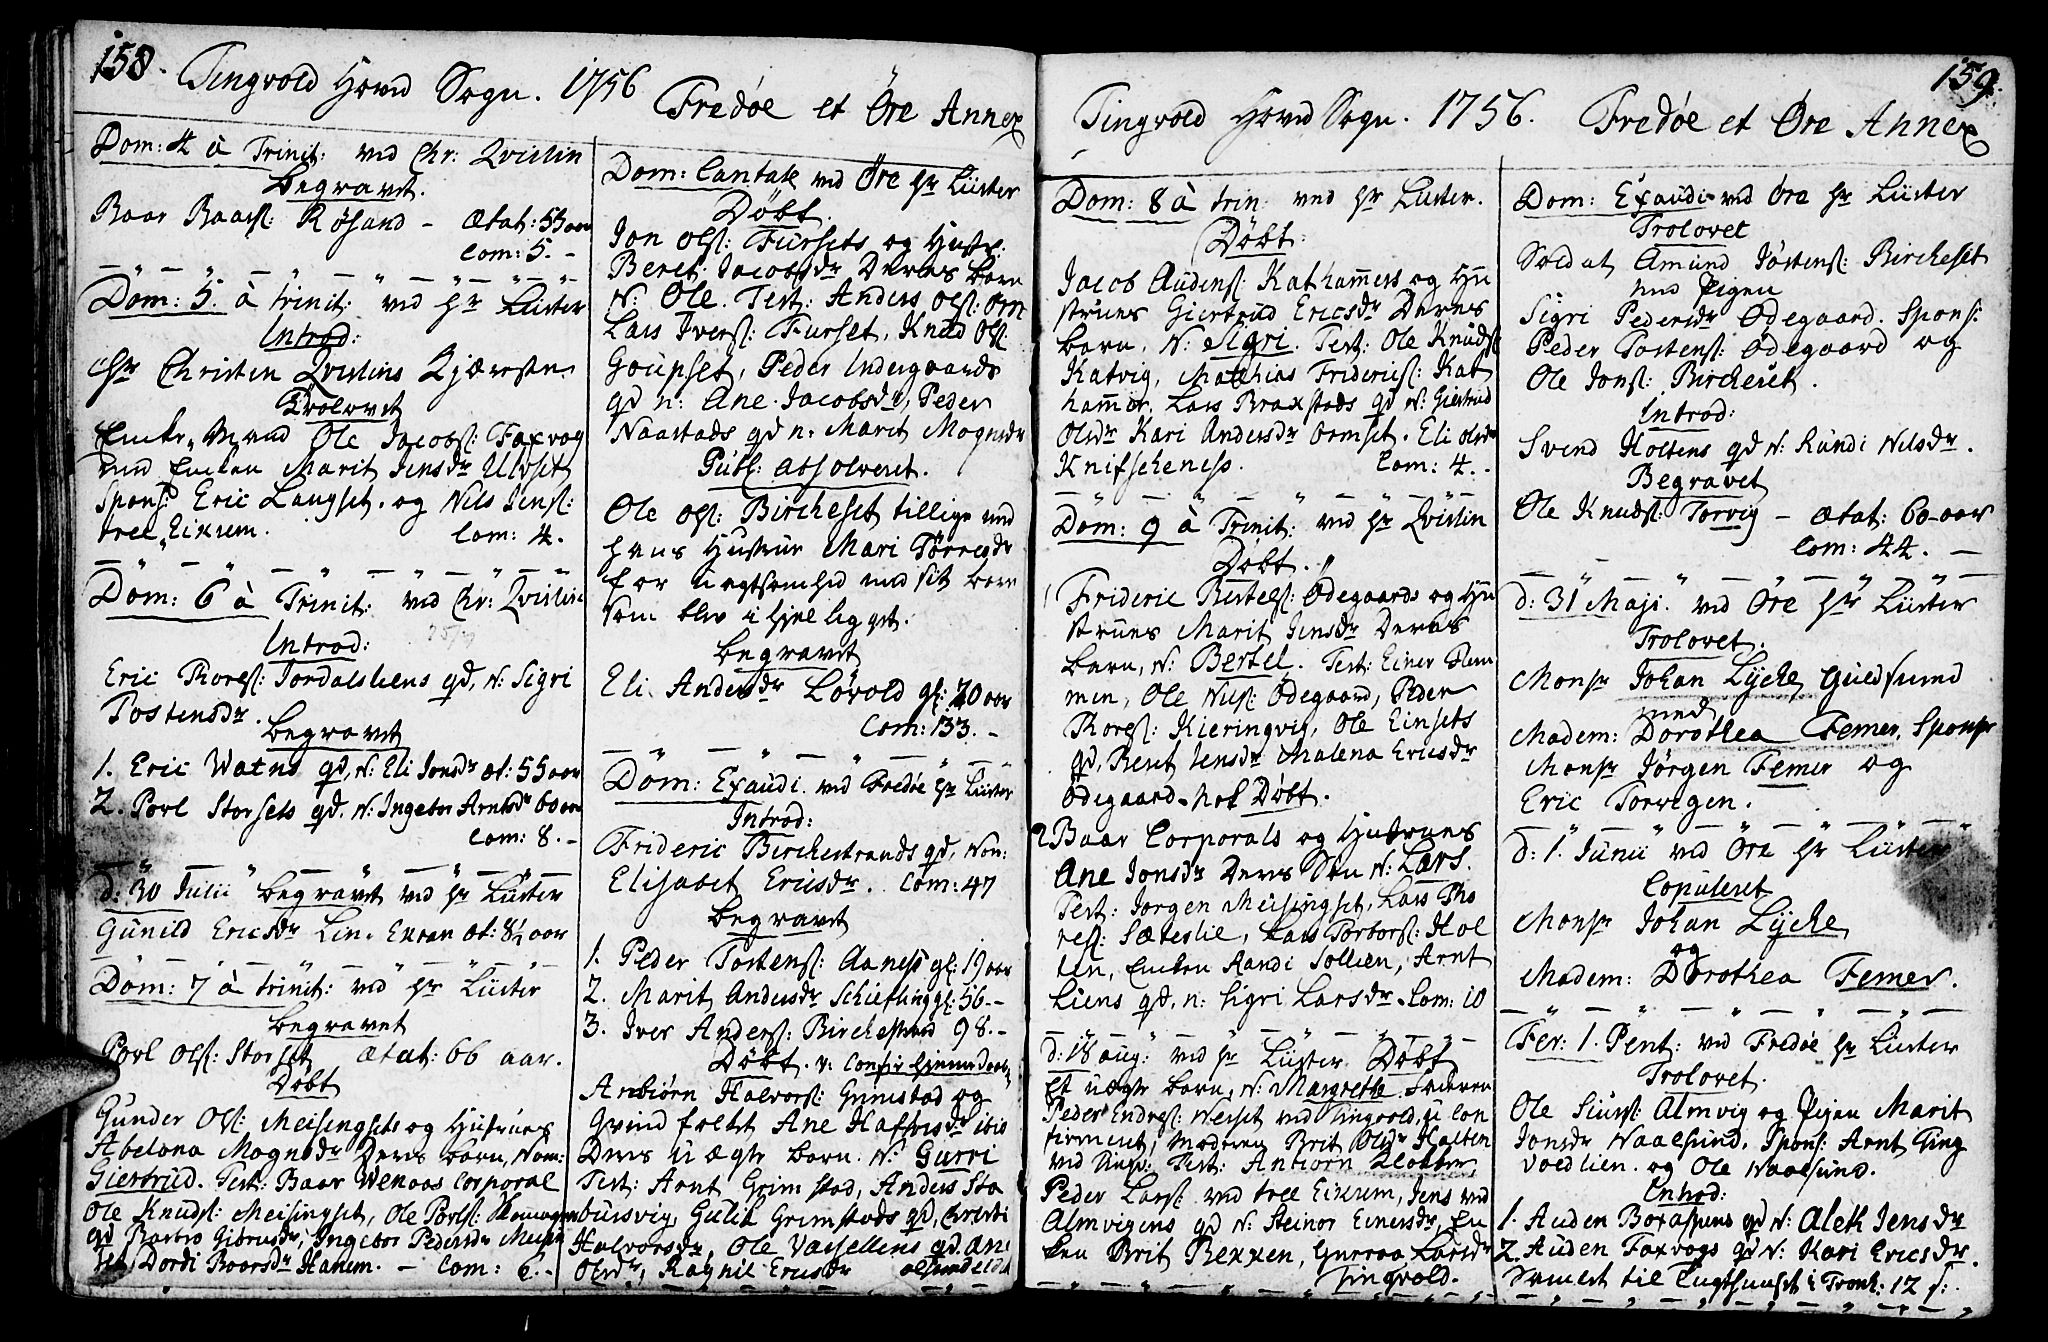 158. Tingvold Hoved Sogn. 1756 Fredøe et Öre Annex
Dom: 4 à Trinit: ved Chr: Qvislin
Begravet.
Baar Baarsl: Røsand - Ætat: 55 aar
Com: 5. -
Dom: 5. à trinit: ved Hr Lüster
Introd:
Hr Christen Qvislins Kjæreste
Trolovet
Enke Mand Ole Jacobsl: Faxvog
med Enken Marit Jensdr Ulvset
Spons: Eric Langset. og Nils Jensl:
tree Eixrem. Com: 4.
Dom: 6 à Trinit: ved Chr: Qvislin
Introd:
Eric Thoresl: Jordalsliens qd, N: Sigri
Tostensdr.
Begravet
1. Eric Watns qd, N: Eli Jonsdr æt: 55 aar
2. Povl Storsets qd. N: Ingebor Arntsdr 60 aar
Com: 8. -
d: 30 Julii Begravet ved Hr Lüster
Gunild Ericsdr Lin. Exran æt: 8½ aar
Dom: 7 à trinit: ved Hr Lüster
Begravet
Povl Olsl: Storset Ætat: 66 aar.
Döbt
Gunder Olsl: Meisingsets og Hustrues
Abelona Mognsdr Deres barn, Nom:
Giertrud. Test: Baar Wenaas Corporal
Ole Knudsl: Meisingset, Ole Povlsl:
qd Barbro Gibrusdr, Ingebor Pedersdr
Dordi Baarsdr Hanem. - Com: 6. -
Dom: Cantate ved Øre Hr Lüster
Döbt.
Jon Olsl: Fursets og Hustr:
Beret Jacobsdr Deres barn
N: Ole. Test: Anders Olsl: Orn
Lars Iversl: Furset, Knud Olsl
Goupset, Peder Indergaards
qd n: Ane Jacobsdr, Peder
Naastads qd n: Marit Mognsdr
Publ: absolveret.
Ole Olsl: Bircheset tillige med
hans Hustrue Mari Torresdr
for uagtsomhed med sit barn
som blev i hiel ligget.
Begravet
Eli Andersdr Lövold gl: 20 aar
Com: 133. -
Dom: Exaudi. ved Fredøe Hr Lüster
Introd:
Frideric Birchestrands qd, Nom:
Elisabet Ericsdr. Com: 47
Begravet
1. Peder Tostensl: Aaness gl: 19 aar
2. Marit Andersdr Schiefling gl: 56 --
3. Iver Andersl: Birchestrand 98. -
Döbt. v: Confir: hiemedøbt
Anbiörn Halvorsl: Grimstad og
Qvindfolket Ane Haftorsdr ibid
Deres uægte barn. N: Gurri
Test: Arnt Grimstad, Anders Sta
bursvig, Gulik Grimstads qd, Chresti
Halvorsdr, Ole Vassellens qd. Ane
Olsdr, Ragnil Ericsdr
Tingvold Hoved Sogn. 1756. Fredøe et Øre Annex 159.
Dom: 8 à trin: ved Hr Lüster.
Döbt:
Jacob Audensl: Kathammers og Hu
strues Giertrud Ericsdr Deres
barn, N: Sigri. Test: Ole Knudsl
Katvig, Matthias Fridericsl: Kat
hammer, Lars Braxstads qd N: Giertrud
Olsdr Kari Andersdr Ormset. Eli Olsdr
Knifscheness. Com: 4. -
Dom: 9 à Trinit: ved Hr Qvislin
Döbt.
1 Frideric Bertelsl: Ødegaards og Hu
strues Marit Jensdr Deres
barn, N: Bertel. Test: Einer Flem
men, Ole Nilsl: Ødegaard, Peder
Thoresl: Kieringvig, Ole Einsets
qd, Beret Jensdr Malena Ericsdr
Ødegaard. nok Döbt.
2 Baar Corporals og Hustrues
Ane Jonsdr Deres Søn N: Lars.
Test: Jorgen Meisingset, Lars Tho
resl: Sæteslie, Lars Torborsl: Hol
ten, Enken Randi Sollien, Arnt
Liens qd, n: Sigri Larsdr. Com: 10
d: 18 aug: ved Hr Lüster Döbt
Et uægte barn, N: Margrethe. Faderen
Peder Endresl: Neset ved Tingvold, u Con
firmeret, Moderen Brit Olsdr Halten
ved Test: Anbiørn Klokker
Peder Larsl: ved tree Eixrem, Jens ved
Almvigens qd N: Steinor Einersdr, En
ken Brit Bexxen, Gurraa Larsdr
Tingvold.
Dom: Exaudi ved Øre Hr Lüster
Trolovet
Soldat Amund Jöstensl: Bircheset
med Pigen
Sigri Pedersdr Ødegaard. Spons:
Peder Tostensl: Ødegaard og
Ole Jonsl: Bircheset.
Introd:
Svend Holtens qd N: Rundi Nilsdr.
Begravet
Ole Knudsl: Torvig - Ætat: 60 - aar
Com: 44. -
d: 31 Maji. ved Øre Hr Lüster
Trolovet.
Monsr Johan Lyche Guldsmed
med
Madem: Dorothea Femer, Sponsr
Monsr Jörgen Femer og
Eric Torvigen.
d: 1. Junii ved Øre Hr Lüster
Copuleret
Monsr Johan Lyche
og
Madem: Dorothea Femer.
Fer: 1. Pent: ved Fredøe Hr Lüster
Trolovet.
Ole Siursl: Almvig og Pigen Marit
Jonsdr Naalsund, Spons: Arnt Ting
voedlien. og Ole Naalsund.
Introd:
1. Auden Boxaspuns qd N: Aleth Jensdr
2. Auden Faxvogs qd N: Kari Ericsdr.
Samlet til Tugthuuset i Tronh: 12 s: